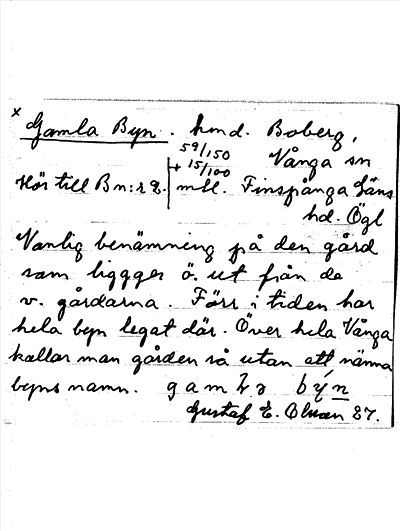 x Gamla Byn. hmd. Boberg,
59/150
+ 15/100 Vånga sn
Hör till Bn:r 2. mtl. Finspånga Läns
hd. Ögl
Vanlig benämning på den gård
som ligger ö. ut från de
v. gårdarna. Förr i tiden har
hela byn legat där. Över hela Vånga
kallar man gården så utan att nämna
byns namn. byn
Gustaf E. Olsson 27.